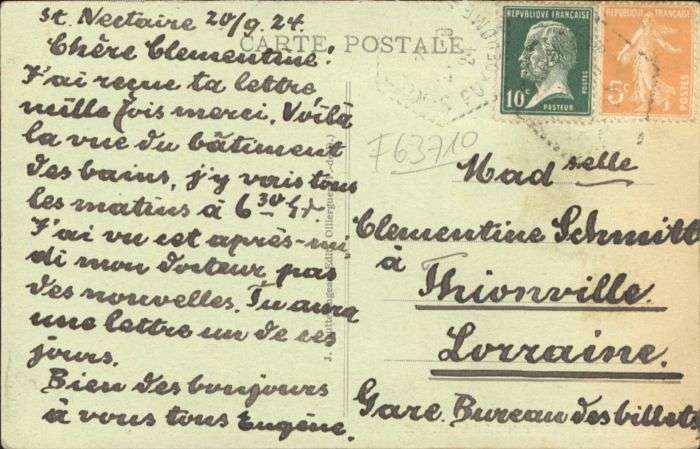 St. Nectaire 20/9. 24.
CARTE POSTALE
Chère Clementine!
J'ai reçue ta lettre
mille fois merci. Voilà
la vue du bâtiment
des bains, j'y vais tous
les matins à 6 30
J'ai vu cet après-mi
di mon docteur, pas
des nouvelles. Tu aura
une lettre un de ces
jours.
Bien des bonjours
à vous tous Eugène.
RÉPUBLIQUE FRANÇAISE
10c
PASTEUR
POSTES
RÉPUBLIQUE FRANÇAISE
5c
POSTES
F63710
Madselle
Clementine Schmitt
à
Thionville.
Lorraine.
Gare. Bureau des billets